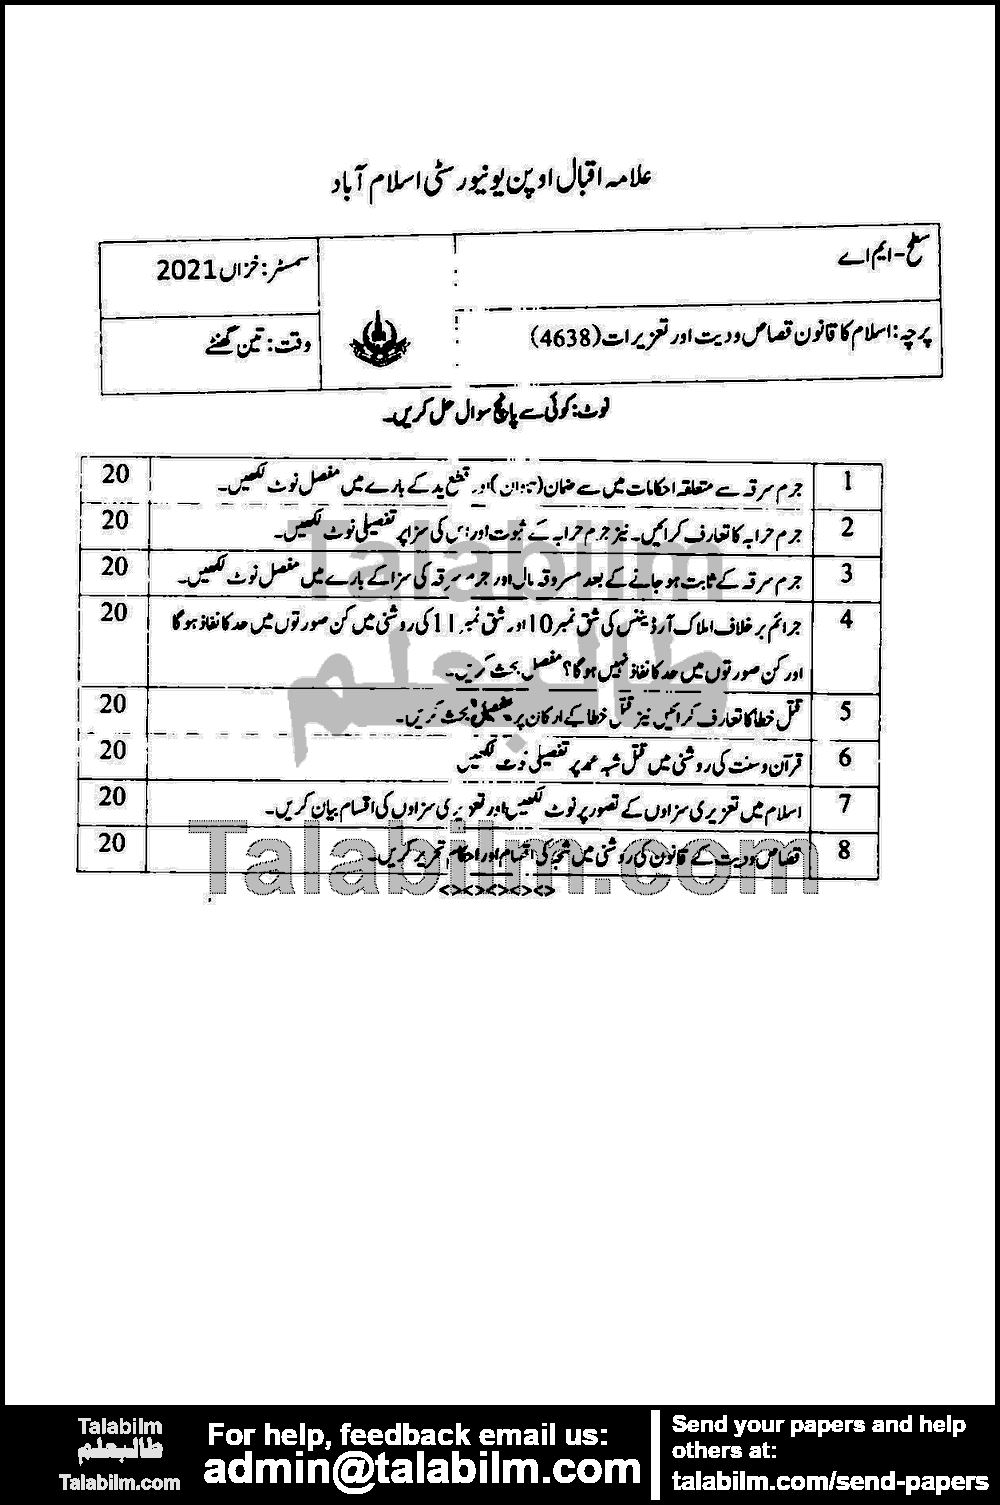 علامہ اقبال اوپن یونیورسٹی اسلام آباد
سطح-ایم اے
سمسٹر: خزاں 2021
پرچہ: اسلام کا قانون قصاص و دیت اور تعزیرات (4638)
وقت: تین گھنٹے
نوٹ: کوئی سے پانچ سوال حل کریں۔
1 جرم سرقہ سے متعلقہ احکامات میں سے ضمان (تاوان) اور قطع ید کے بارے میں مفصل نوٹ لکھیں۔ 20
2 جرم حرابہ کا تعارف کرائیں۔ نیز جرم حرابہ کے ثبوت اور اس کی سزا پر تفصیلی نوٹ لکھیں۔ 20
3 جرم سرقہ کے ثابت ہو جانے کے بعد مسروقہ مال اور جرم سرقہ کی سزا کے بارے میں مفصل نوٹ لکھیں۔ 20
4 جرائم بر خلاف املاک آرڈیننس کی شق نمبر 10 اور شق نمبر 11 کی روشنی میں کن صورتوں میں حد کا نفاذ ہو گا 20
اور کن صورتوں میں حد کا نفاذ نہیں ہو گا؟ مفصل بحث کریں۔
5 قتل خطا کا تعارف کرائیں نیز قتل خطا کے ارکان پر تفصیلی بحث کریں۔ 20
6 قرآن و سنت کی روشنی میں قتل شبہ عمد پر تفصیلی نوٹ لکھیں 20
7 اسلام میں تعزیری سزاوں کے تصور پر نوٹ لکھیں اور تعزیری سزاوں کی اقسام بیان کریں۔ 20
8 قصاص و دیت کے قانون کی روشنی میں شجہ کی اقسام اور احکام تحریر کریں۔ 20
<><><><><>
Talabilm
طالبعلم
Talabilm.com
Talabilm
طالبعلم
Talabilm.com
For help, feedback email us:
admin@talabilm.com
Send your papers and help
others at:
talabilm.com/send-papers